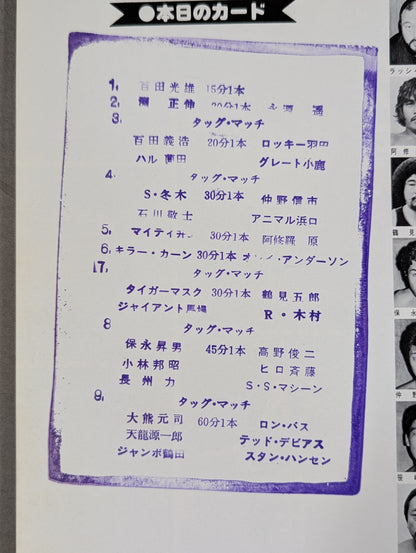 ●本日のカード
1, 百田光雄 15分1本
2, 淵 正伸 20分1本 永源 遥
3, タッグ・マッチ
百田義浩 20分1本 ロッキー羽田
ハル 薗田 グレート小鹿
4, タッグ・マッチ
S・冬木 30分1本 仲野信市
石川敬士 アニマル浜口
5, マイティ 30分1本 阿修羅 原
6, キラー・カーン 30分1本 ・アンダーソン
17, タッグ・マッチ
タイガーマスク 30分1本 鶴見五郎
ジャイアント馬場 R・木村
8 タッグ・マッチ
保永昇男 45分1本 高野俊二
小林邦昭 ヒロ斉藤
長州 力 S・S・マシーン
9, タッグ・マッチ
大熊元司 60分1本 ロン・バス
天龍源一郎 テッド・デビアス
ジャンボ鶴田 スタン・ハンセン
ラッシ
阿修
鶴見
保永
仲野